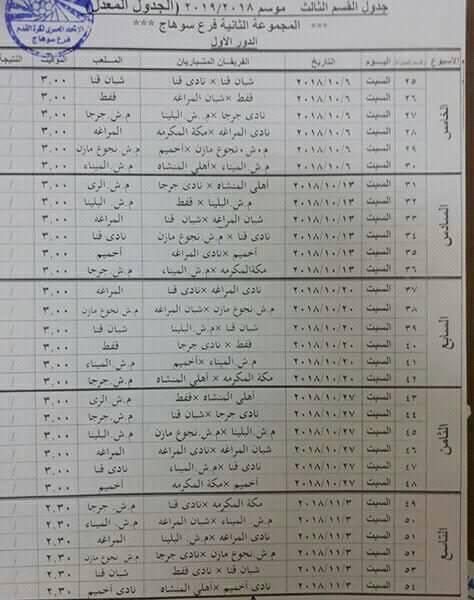 جدول القسم الثالث موسم ٢٠١٩/٢٠١٨ (الجدول المعدل)
*** المجموعة الثانية فرع سوهاج ***
الدور الأول
الاتحاد المصرى لكرة القدم
فرع سوهاج
الاسبوع اليوم التاريخ الفريقان المتباريان الملعب التوقيت النتيجة
الخامس
٢٥ السبت ٢٠١٨/١٠/٦ شبان قنا × نادى قنا شبان قنا ٣.٠٠
٢٦ السبت ٢٠١٨/١٠/٦ قفط × شبان المراغه قفط ٣.٠٠
٢٧ السبت ٢٠١٨/١٠/٦ نادى جرجا × م.ش البلينا م.ش جرجا ٣.٠٠
٢٨ السبت ٢٠١٨/١٠/٦ نادى المراغه ×مكة المكرمه المراغه ٣.٠٠
٢٩ السبت ٢٠١٨/١٠/٦ م.ش نجوع مازن ×أخميم م.ش نجوع مازن ٣.٠٠
٣٠ السبت ٢٠١٨/١٠/٦ م.ش الميناء ×أهلى المنشاه م.ش الميناء ٣.٠٠
السادس
٣١ السبت ٢٠١٨/١٠/١٣ أهلى المنشاه × نادى جرجا م.ش الرى ٣.٠٠
٣٢ السبت ٢٠١٨/١٠/١٣ م.ش البلينا × قفط م.ش البلينا ٣.٠٠
٣٣ السبت ٢٠١٨/١٠/١٣ شبان المراغه× شبان قنا المراغه ٣.٠٠
٣٤ السبت ٢٠١٨/١٠/١٣ نادى قنا ×م.ش نجوع مازن نادى قنا ٣.٠٠
٣٥ السبت ٢٠١٨/١٠/١٣ أخميم ×نادى المراغه أخميم ٣.٠٠
٣٦ السبت ٢٠١٨/١٠/١٣ مكة المكرمه ×م.ش الميناء م.ش جرجا ٣.٠٠
السابع
٣٧ السبت ٢٠١٨/١٠/٢٠ نادى المراغه ×نادى قنا المراغه ٣.٠٠
٣٨ السبت ٢٠١٨/١٠/٢٠ م.ش نجوع مازن ×شبان المراغه م.ش نجوع مازن ٣.٠٠
٣٩ السبت ٢٠١٨/١٠/٢٠ شبان قنا ×م.ش البلينا شبان قنا ٣.٠٠
٤٠ السبت ٢٠١٨/١٠/٢٠ قفط × نادى جرجا قفط ٣.٠٠
٤١ السبت ٢٠١٨/١٠/٢٠ م.ش الميناء ×أخميم م.ش الميناء ٣.٠٠
٤٢ السبت ٢٠١٨/١٠/٢٠ مكة المكرمه × أهلى المنشاه م.ش جرجا ٣.٠٠
الثامن
٤٣ السبت ٢٠١٨/١٠/٢٧ أهلى المنشاه ×قفط م.ش الرى ٣.٠٠
٤٤ السبت ٢٠١٨/١٠/٢٧ نادى جرجا ×شبان قنا م.ش جرجا ٣.٠٠
٤٥ السبت ٢٠١٨/١٠/٢٧ م.ش البلينا ×م.ش نجوع مازن م.ش البلينا ٣.٠٠
٤٦ السبت ٢٠١٨/١٠/٢٧ شبان المراغه ×نادى المراغه المراغه ٣.٠٠
٤٧ السبت ٢٠١٨/١٠/٢٧ نادى قنا ×م.ش الميناء نادى قنا ٣.٠٠
٤٨ السبت ٢٠١٨/١٠/٢٧ أخميم ×مكة المكرمه أخميم ٣.٠٠
التاسع
٤٩ السبت ٢٠١٨/١١/٣ مكة المكرمه ×نادى قنا م.ش جرجا ٢.٣٠
٥٠ السبت ٢٠١٨/١١/٣ م.ش الميناء ×شبان المراغه م.ش الميناء ٢.٣٠
٥١ السبت ٢٠١٨/١١/٣ نادى المراغه ×م.ش البلينا المراغه ٢.٣٠
٥٢ السبت ٢٠١٨/١١/٣ م.ش نجوع مازن ×نادى جرجا م.ش نجوع مازن ٢.٣٠
٥٣ السبت ٢٠١٨/١١/٣ شبان قنا × قفط شبان قنا ٢.٣٠
٥٤ السبت ٢٠١٨/١١/٣ نادى أخميم ×أهلى المنشاه نادى أخميم ٢.٣٠